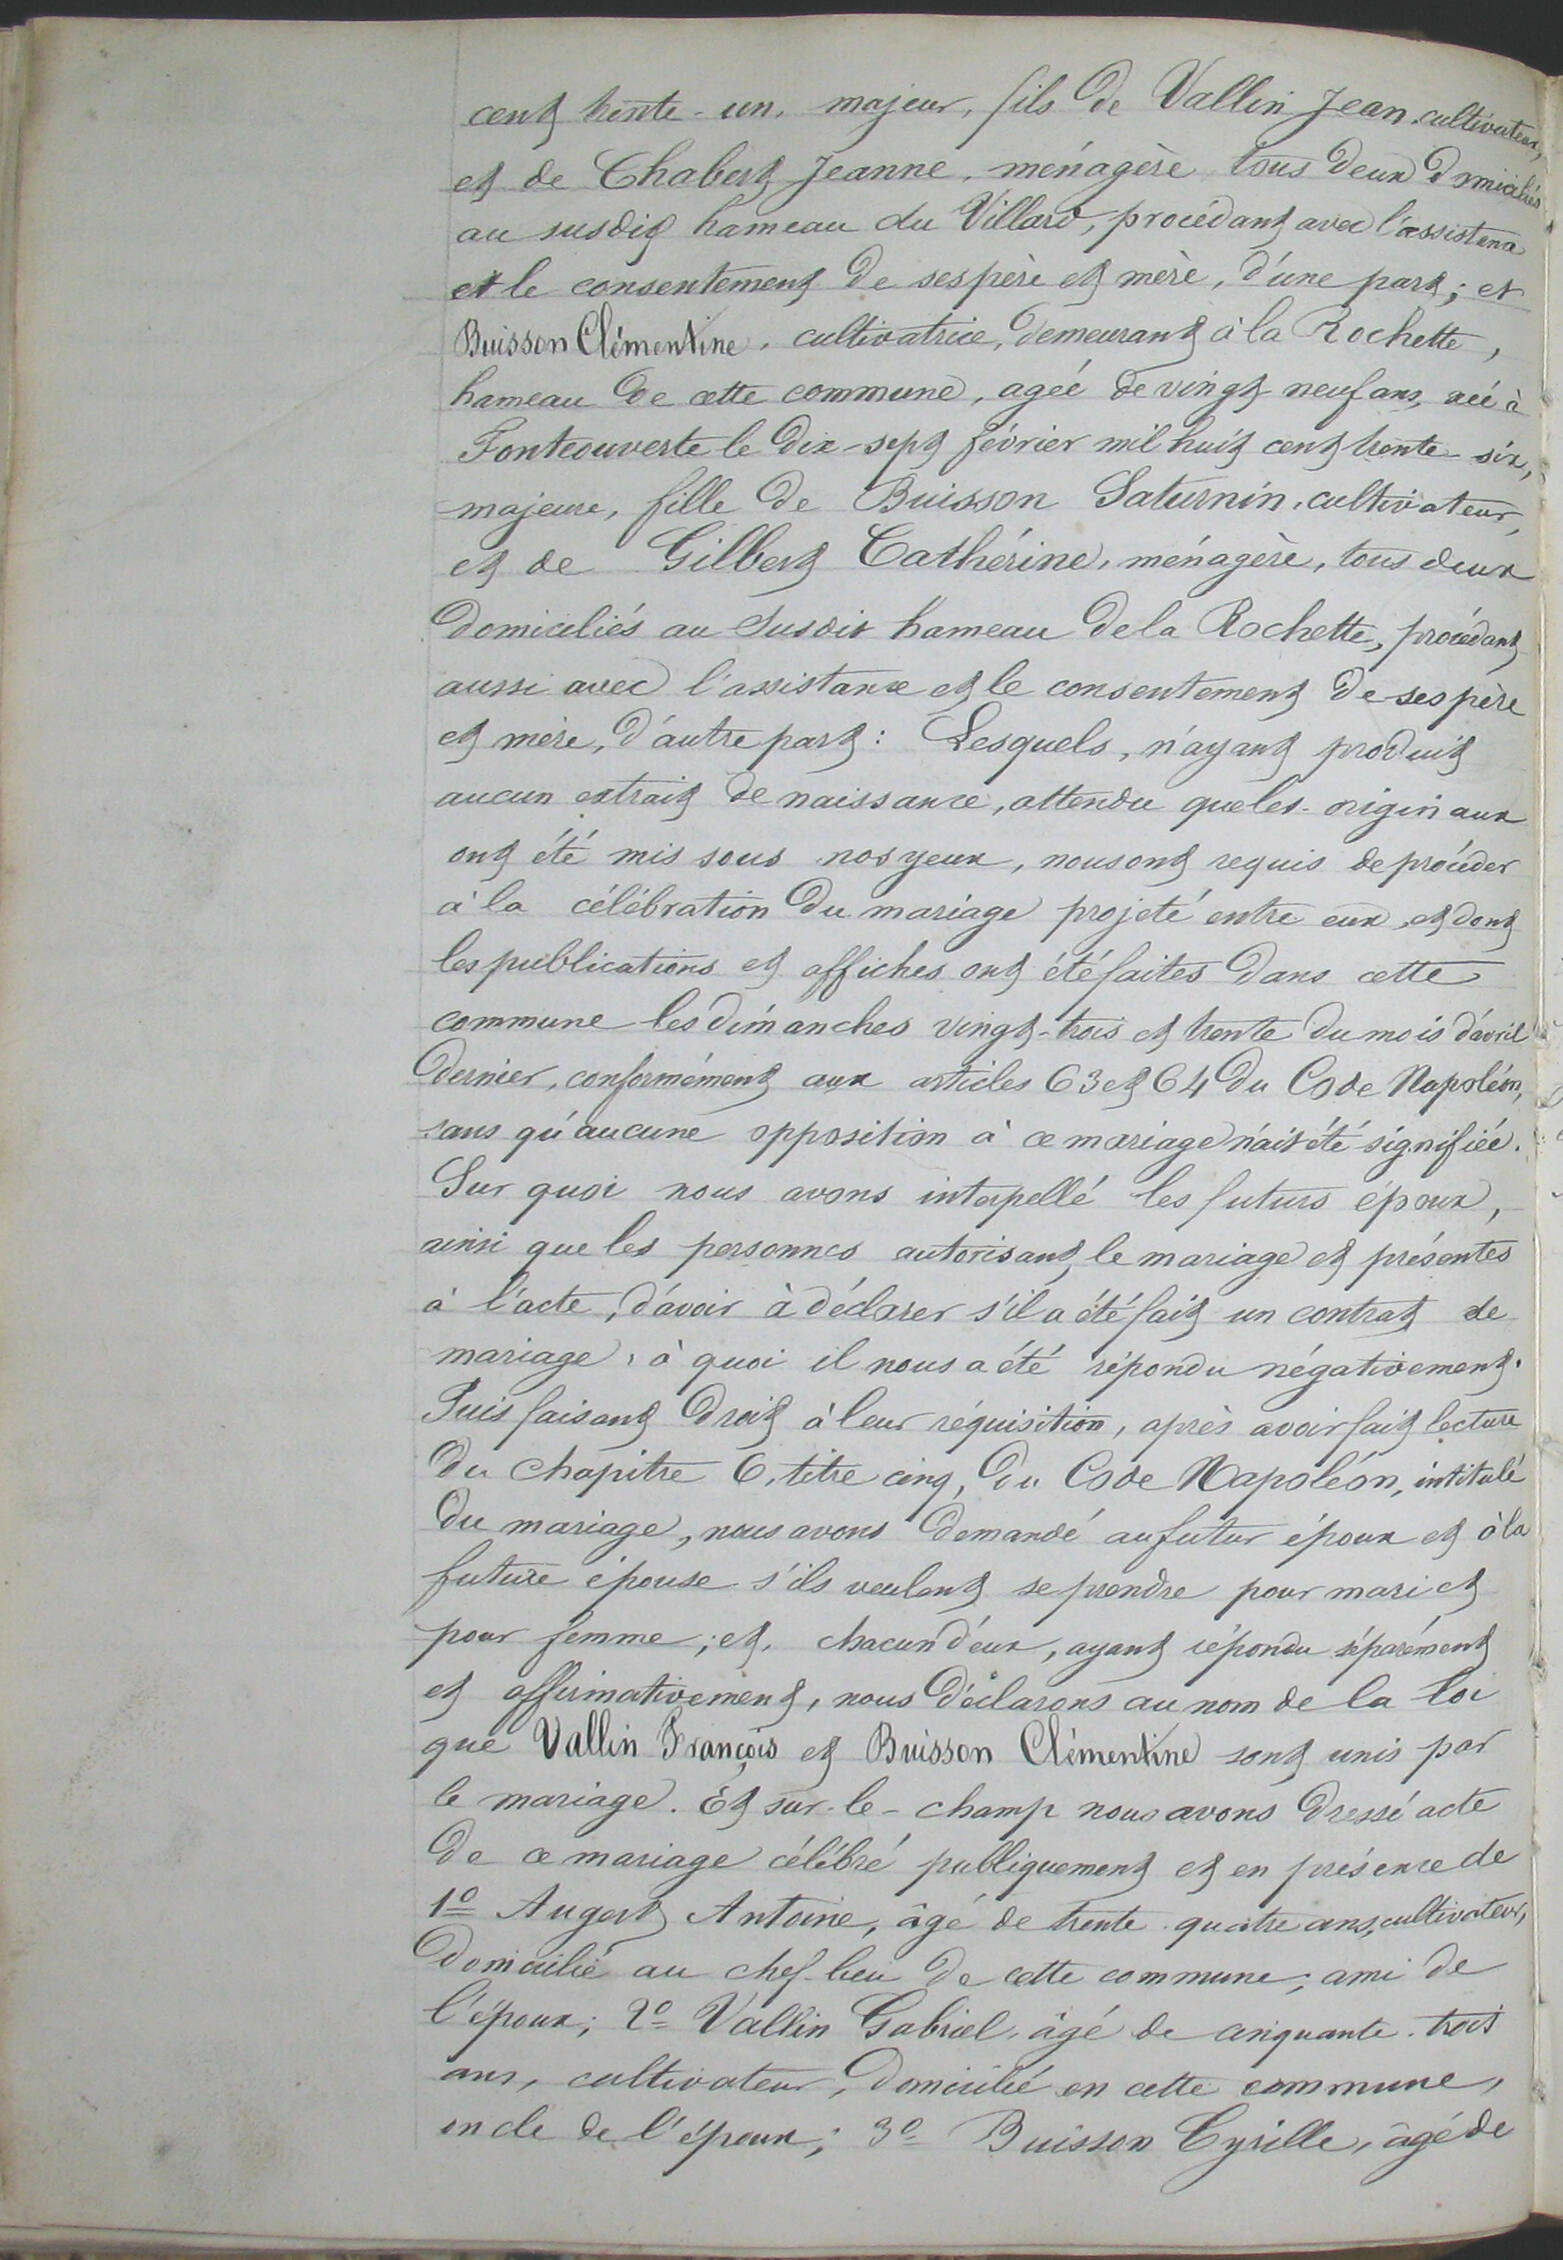 cent trente-un, majeur, fils de Vallin Jean, cultivateur,
et de Chabert Jeanne, ménagère tous deux domiciliés
au susdit hameau du Villard, procédant avec l'assistance
et le consentement de ses père et mère, d'une part; et
Buisson Clémentine, cultivatrice, demeurant à la Rochette,
hameau de cette commune, agée de vingt-neuf ans, née à
Fontcouverte le dix-sept février mil huit cent trente-six,
majeure, fille de Buisson Saturnin, cultivateur,
et de Gilbert Cathérine, ménagère, tous deux
domiciliés au susdit hameau de la Rochette, procédant
aussi avec l'assistance et le consentement de ses père
et mère, d'autre part: Lesquels, n'ayant produit
aucun extrait de naissance, attendu que les originaux
ont été mis sous nos yeux, nous ont requis de procéder
à la célébration du mariage projeté entre eux, et dont
les publications et affiches ont été faites dans cette
commune les dimanches vingt-trois et trente du mois d'avril
dernier, conformément aux articles 63 et 64 du Code Napoléon,
sans qu'aucune opposition à ce mariage n'ait été signifiée.
Sur quoi nous avons interpellé les futurs époux,
ainsi que les personnes autorisant le mariage et présentes
à l'acte, d'avoir à déclarer s'il a été fait un contrat de
mariage, à quoi il nous a été répondu négativement.
Puis faisant droit à leur réquisition, après avoir fait lecture
du chapitre 6, titre cinq, du Code Napoléon, intitulé
du mariage, nous avons demandé au futur époux et à la
future épouse s'ils veulent se prendre pour mari et
pour femme; et, chacun d'eux, ayant répondu séparément
et affirmativement, nous déclarons au nom de la loi
que Vallin François et Buisson Clémentine sont unis par
le mariage. Et sur-le-champ nous avons dressé acte
de ce mariage célébré publiquement et en présence de
1o Augert Antoine, âgé de trente quatre ans, cultivateur,
domicilié au chef-lieu de cette commune, ami de
l'époux; 2o Vallin Gabriel, âgé de cinquante-trois
ans, cultivateur, domicilié en cette commune,
oncle de l'époux; 3o Buisson Cyrille, âgé de